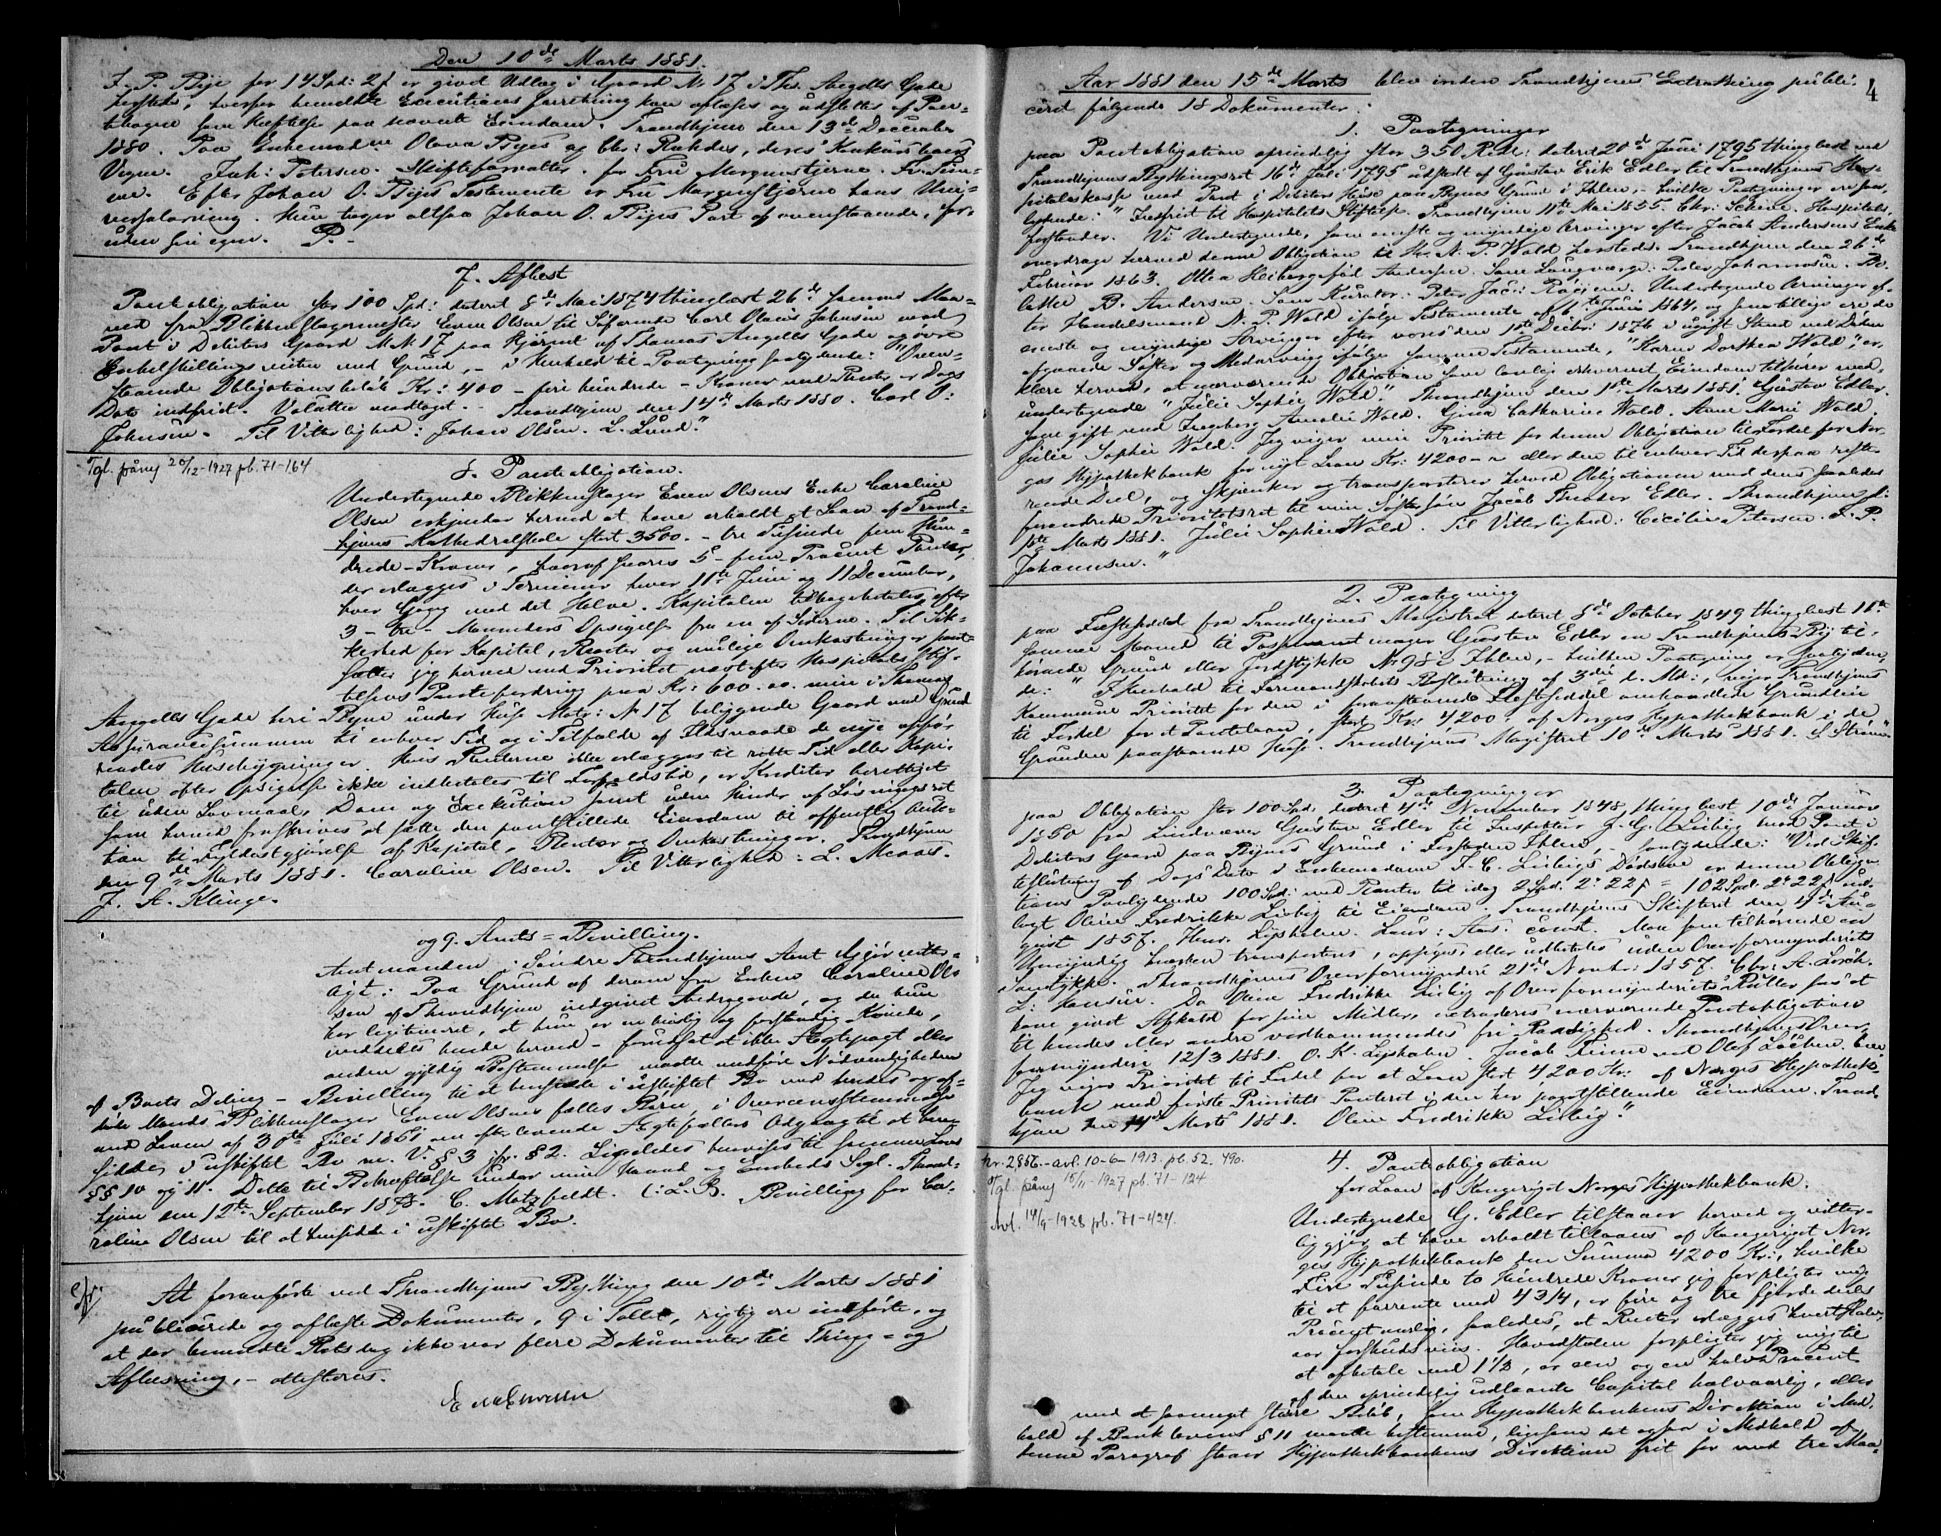 Den 10de Marts 1881.
J. P. Bye for 14 Spd: 2 ƒ er givet Udlæg i Gaard No 17 i Ths. Angells Gade
hersteds, hvorfor bemeldte Executionsforretning kan aflæses og udslettes af Pan-
tebogen som Hæftelse paa nævnte Eiendom. Trondhjem den 13de December
1880. Paa Enkemadme Olava Byes og Chr: Rohdes, deres Konkursboers
Vegne. Joh: Petersen. Skifteforvalter. for Fru Morgenstjerne. Fr. Fin-
ne. Efter Johan O. Byes Testamente er Fru Morgenstjerne hans Uni-
versalarving. Hun tager altsaa Johan O. Byes Part af ovenstaaende, for-
uden sin egen.
7. Aflæst
Pantobligation stor 100 Spd: dateret 8de Mai 1874 thinglæst 26de samme Maa-
ned fra Blikkenslagermester Even Olsen til Søfarende Carl Olaus Johnsen mod
Pant i Debitors Gaard M. No 17 paa Hjørnet af Thomas Angells Gade og øvre
Enkelskillingsveiten med Grund, - i Henhold til Paategning saalydende: "Oven-
staaende Obligations beløb Kr: 400 - fire hundrede - Kroner med Renter er Dags
Dato indfriet. Valutta modtaget. - Trondhjem den 14de Marts 1880. Carl O:
Johnsen. Til Vitterlighed: Johan Olsen. L. Lund."
Tgl. påny 20/12-1927 pb. 71-164
8. Pantobligation.
Undertegnede Blikkenslager Even Olsens Enke Caroline
Olsen erkjender herved at have erholdt et Laan af Trond-
hjems Kathedralskole stort 3500. - tre Tusinde fem Hun-
drede - Kroner, hvoraf svares 5 - fem Procent Renter,
der erlægges i Terminer hver 11te Juni og 11 December,
hver Gang med det Halve. Kapitalen tilbagebetales efter
3 - tre - Maaneders Opsigelse fra en af Siderne. Til Sik-
kerhed for Kapital, Renter og mulige Omkostninger pant-
sætter jeg herved med Prioritet næst efter Hospitalets Stif-
telsens Pantefordring paa Kr: 600.00. min i Thomas
Angells Gade her i Byen under Huse Matr: No 17 beliggende Gaard med Grund
Assurancesummen til enhver Tid og i Tilfælde af Ildsvaade de nye opfør-
endes Husebygninger. Hvis Renterne ikke erlægges til rette Tid eller Kapi-
talen efter Opsigelse ikke indbetales til Forfaldstid, er Kreditor berettiget
til uden Lovmaal, Dom og Exekution samt uden Hinder af Løsningsret
som herved fraskrives at sætte den pantstillede Eiendom til offentlig Auk-
tion til Fyldestgjørelse af Kapital, Renter og Omkostninger. Trondhjem
den 9de Marts 1881. Caroline Olsen. Til Vitterlighed: L. Moans.
J. A. Klinge.
og 9. Amts-Bevilling.
Amtmanden i Søndre Throndhjems Amt Gjør vitter-
ligt: Paa Grund af derom fra Enken Caroline Ol-
sen af Throndhjem indgivet Andragende, og da hun
har legitimeret, at hun er en huuslig og forstandig Kvinde,
meddeles hende herved - forudsat at ikke Ægtepagt eller
anden gyldig Bestemmelse maatte medføre Nødvendigheden
af Boets Deling - Bevilling til at hensidde i uskiftet Bo med hendes og af-
døde Mands Blikkenslager Even Olsens fælles Børn, i Overensstemmelse
med Loven af 30te Juli 1851 om efterlevende Ægtefællers Adgang til at hen-
sidde i uskiftet Bo m. V. § 3 jfr. § 2. Ligeledes henvises til samme Lovs
§§ 10 og 11. Dette til Bekræftelse under min Haand og Embeds Segl. Thrond-
hjem den 12te September 1878. C. Motzfeldt. (:L.S. Bevilling for Ca-
roline Olsen til at hensidde i uskiftet Bo.
At foranførte ved Throndhjems Bything den 10de Marts 1881
publicerede og aflæste Dokumenter, 9 i Tallet, rigtig ere indførte, og
at der bemeldte Retsdag ikke var flere Dokumenter til Thing- og
Aflæsning, - attesteres.
4
Aar 1881 den 15de Marts blev inden Trondhjems Extrathing publi-
ceret følgende 18 Dokumenter:
1. Paategninger
paa Pantobligation oprindelig stor 350 Rdlr: dateret 20de Juni 1795 thinglæst ved
Trondhjems Bythingsret 16de Juli 1795 udstedt af Gustav Erik Edler til Trondhjems Hos-
pitalskasse mod Pant i Debitors Huse paa Byens Grund i Ihlen, - hvilke Paategninger ere saa-
lydende: "Indfriet til Hospitalets Stiftelse. Trondhjem 11te Mai 1855. Chr: Schein. Hospitals-
forstander. Vi Undertegnede, som eneste og myndige Arvinger efter Jacob Andersens Enke
overdrage herved denne Obligation til Hr. N. P. Wold hersteds. Trondhjem den 26de
Februar 1863. Ottea Heiberg fød Andersen. Som Laugværge: Peder Johannesen. Be-
lette B. Andersen. Som Kurator: Peter Jac: Røgene. Undertegnede Arvinger ef-
ter Handelsmand N. P. Wold ifølge Testamente af 6te Juni 1864, og som tillige ere de
eneste og myndige Arvinger efter vores den 1ste Decbr: 1876 i ugift Stand ved Døden
afgaaede Søster og Medarving ifølge samme Testamente, "Karen Dorthea Wold", er-
klære herved, at nærværende Obligation som lovlig erhvervet Eiendom tilhører med-
undertegnede "Julie Sophie Wold". Throndhjem den 11te Marts 1881. Gustav Edler
som gift med Ingeborg Amalie Wold. Gina Catharina Wold. Anne Marie Wold.
Julie Sophie Wold. Jeg viger min Prioritet for denne Obligation til Fordel for Nor-
ges Hypothekbank for nyt Laan Kr: 4200 - eller den til enhver Tid derpaa reste-
rende Deel, og skjænker og transporterer herved Obligationen med dens saaledes
forandrede Prioritetsret til min Søstersøn Jacob Theodor Edler. Throndhjem d:
11te Marts 1881. Julie Sophie Wold. Til Vitterlighed: Cecilie Petersen. J. P.
Johannesen."
2. Paategning
paa Fæsteseddel fra Trondhjems Magistrat dateret 8de October 1849 thinglæst 11te
samme Maaned til Possementmager Gustav Edler en Trondhjems By til-
hørende Grund eller Jordstykke No 98 i Ihlen, - hvilken Paategning er saalyden-
de: "I Henhold til Formandskabets Beslutning af 3die d. Md:, viger Trondhjems
Kommune Prioritet for den i foranstaaende Fæsteseddel omhandlede Grundleie
til Fordel for et Pantelaan, stort Kr: 4200: af Norges Hypothekbank i de
Grunden paastaaende Huse. Trondhjems Magistrat 10de Marts 1881. S. Strøm."
3. Paategninger
paa Obligation stor 100 Spd: dateret 4de November 1848, thinglæst 10de Januar
1850 fra Lindvæver Gustav Edler til Inspektør J. G. Liebig mod Pant i
Debitors Gaard paa Byens Grund i Forstaden Ihlen, - saalydende: "Ved Skif-
teslutning af Dags Dato i Enkemadame F. C. Liebigs Dødsboe er denne Obliga-
tions Paalydende 100 Spd: med Renter til idag 2 Spd. 2: 22 ƒ = 102 Spd. 2: 22 ƒ ud-
lagt Oline Fredrikke Liebig til Eiendom. Trondhjems Skifteret den 11te Au-
gust 1857. Henr. Lysholm. Laur: Aas. const. Maa som tilhørende en
Umyndig hverken transporteres, opsiges, eller udbetales uden Overformynderiets
Samtykke. Throndhjems Overformynderi 21de Novbr: 1857. Chr: A. Lorck.
L: Hansen. Da Oline Fredrikke Liebig af Overformynderiets Ruller sees at
have givet Afkald for sine Midler, extraderes nærværende Pantobligation
til hendes eller andre vedkommendes fri Raadighed. Throndhjems Over-
formynderi 12/3 1881. O. K. Lysholm. Jacob Finne ved Olaf Løchen.
Jeg viger Prioritet til Fordel for et Laan stort 4,200 Kr: af Norges Hypothek-
bank med første Prioritets Panteret i den her pantstillende Eiendom. Trond-
hjem den 14de Marts 1881. Oline Fredrikke Liebig."
Nr. 2856 - avl. 10-6-1913. pb. 52. 490.
Tgl. påny 15/11-1927 pb. 71-124
Avl. 14/9-1928 pb. 71-424.
4. Pantobligation
for Laan af Kongeriget Norges Hypothekbank.
Undertegnede G. Edler tilstaaer herved og vitter-
liggjør at have erholdt tillaans af Kongeriget Nor-
ges Hypothekbank den Summa 4200 Kr:, hvilke
Fire Tusinde to Hundrede Kroner jeg forpligter mig
til at forrente med 4 3/4, er fire og tre fjerdedeels
Procent aarlig, saaledes, at Renter erlægges hvert Halv-
aar forskudsviis. Hovedstolen forpligter jeg mig til
at afbetale med 1 1/2, er een og en halv Procent
af den oprindelig udlaante Capital halvaarlig, eller
med et saameget større Beløb, som Hypothekbankens Direktion i Med-
hold af Banklovens § 11 maatte bestemme, ligesom det ogsaa i Medhold af
denne Paragraf staaer Hypothekbankens Direktion frit for med tre Maa-